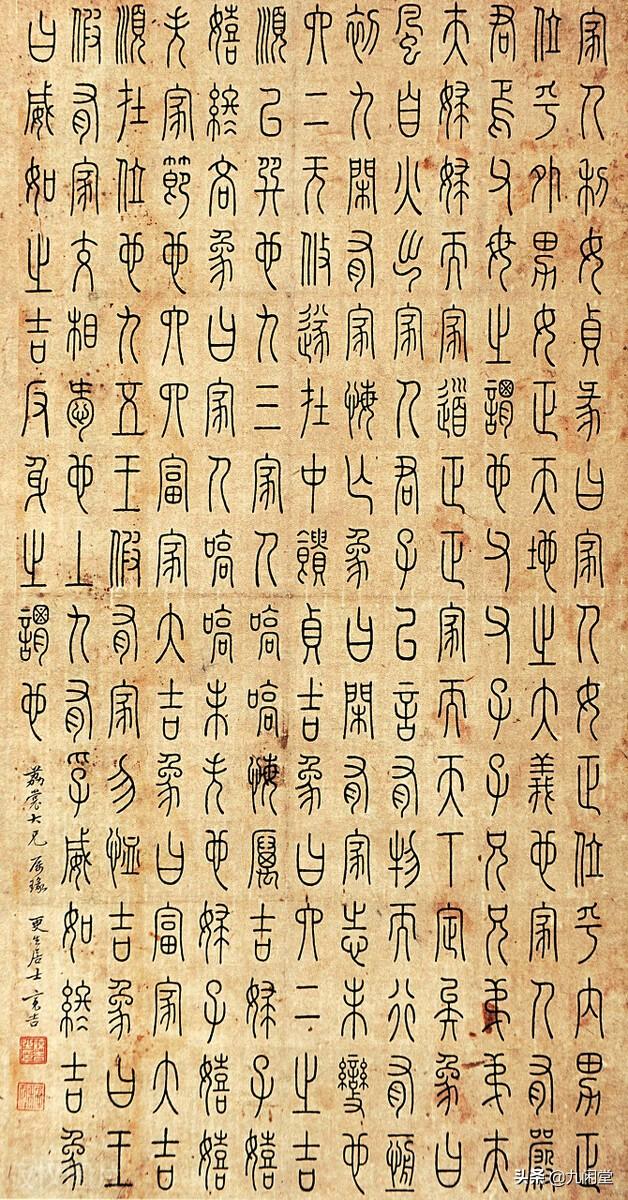 家人利女貞彖曰家人女正位乎内男正
位乎外男女正天地之大義也家人有嚴
君焉父母之謂也父父子子兄兄弟弟夫
夫婦婦而家道正正家而天下定矣象曰
風自火出家人君子以言有物而行有恆
初九閑有家悔亡象曰閑有家志未變也
六二无攸遂在中饋貞吉象曰六二之吉
順以巽也九三家人嗃嗃悔厲吉婦子嬉
嬉終吝象曰家人嗃嗃未失也婦子嬉嬉
失家節也六四富家大吉象曰富家大吉
順在位也九五王假有家勿恤吉象曰王
假有家交相愛也上九有孚威如終吉象
曰威如之吉反身之謂也
荔裳大兄屬篆 更生居士亮吉
头条 @九闲堂